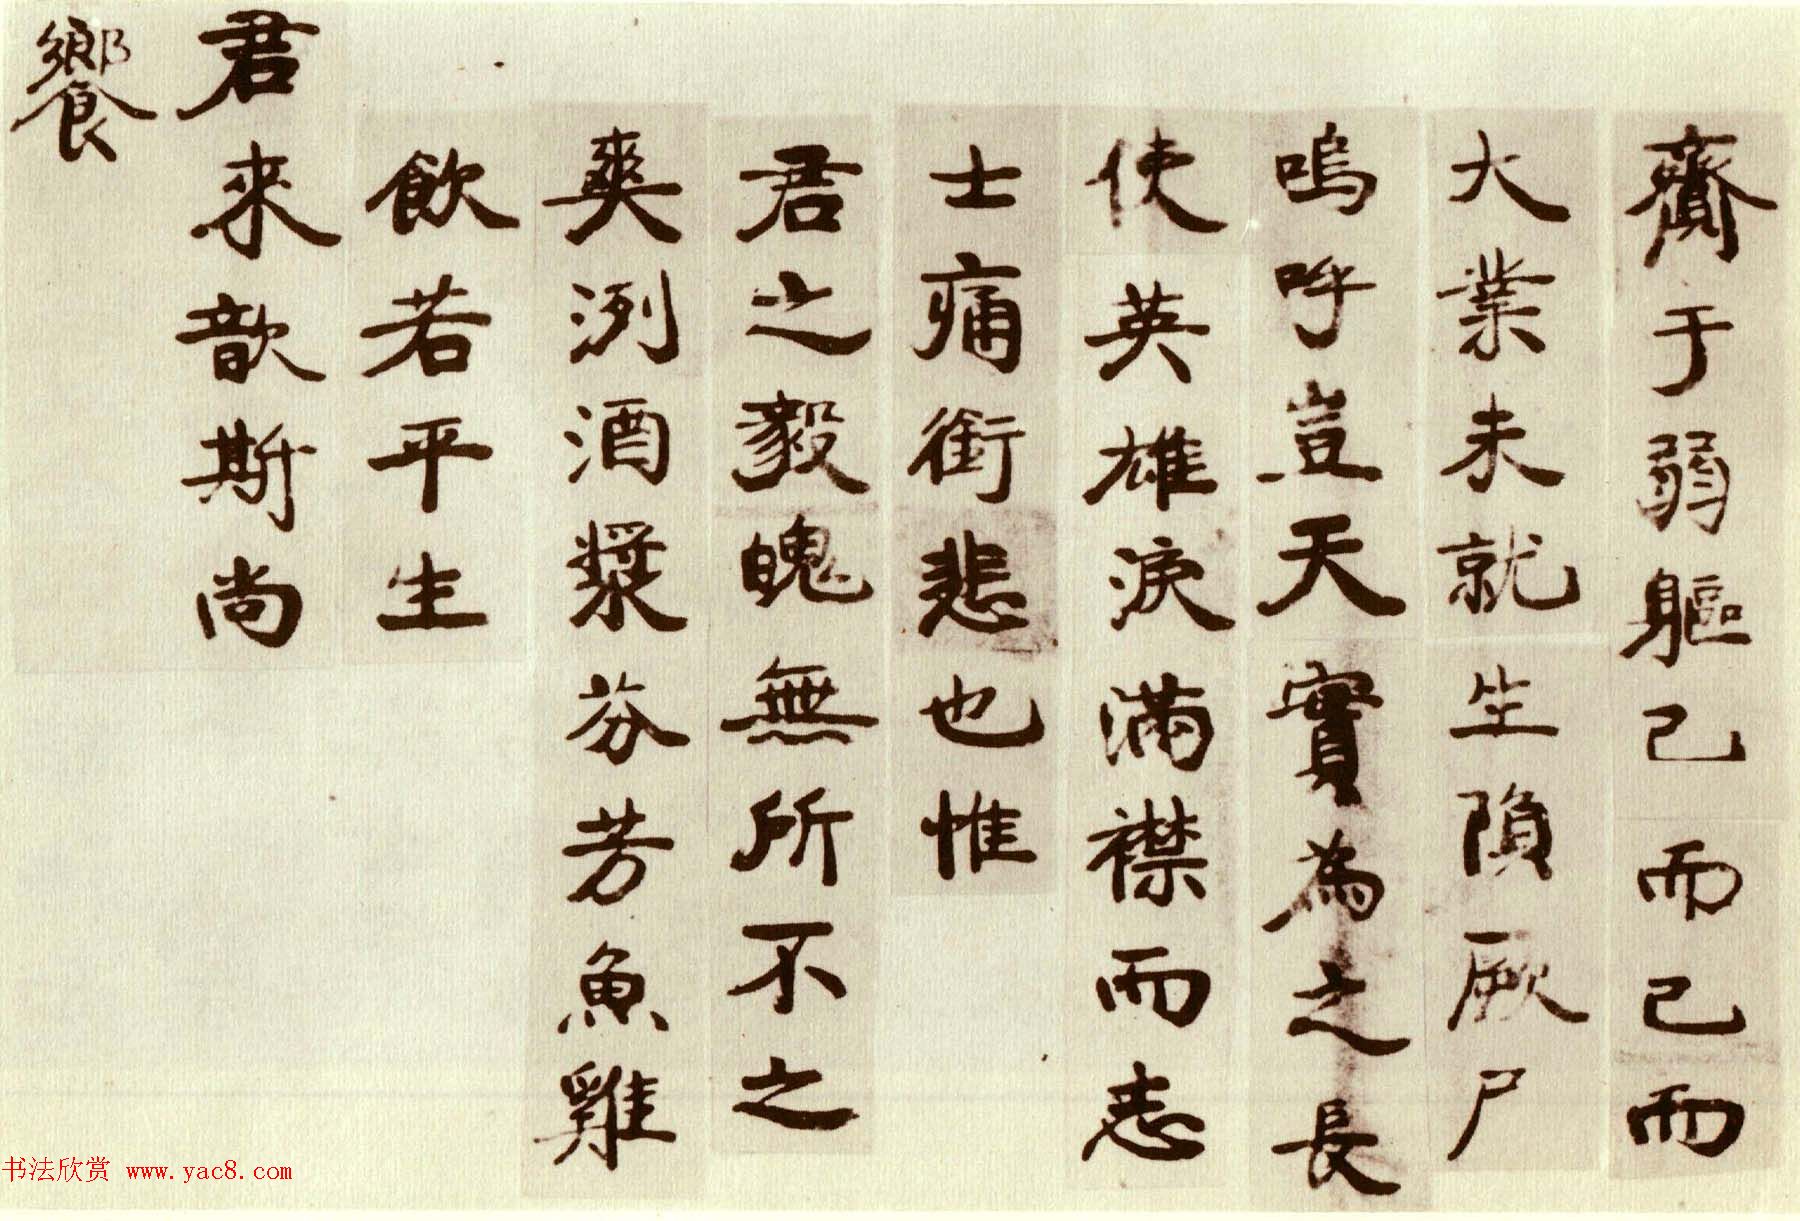 齎于弱軀已而已而
大業未就生隕厥尸
嗚呼豈天實為之長
使英雄淚滿襟而志
士痛銜悲也惟
君之毅魄無所不之
爽洌酒漿芬芳魚雞
飲若平生
君來歆斯尚
饗
书法欣赏 www.yac8.com